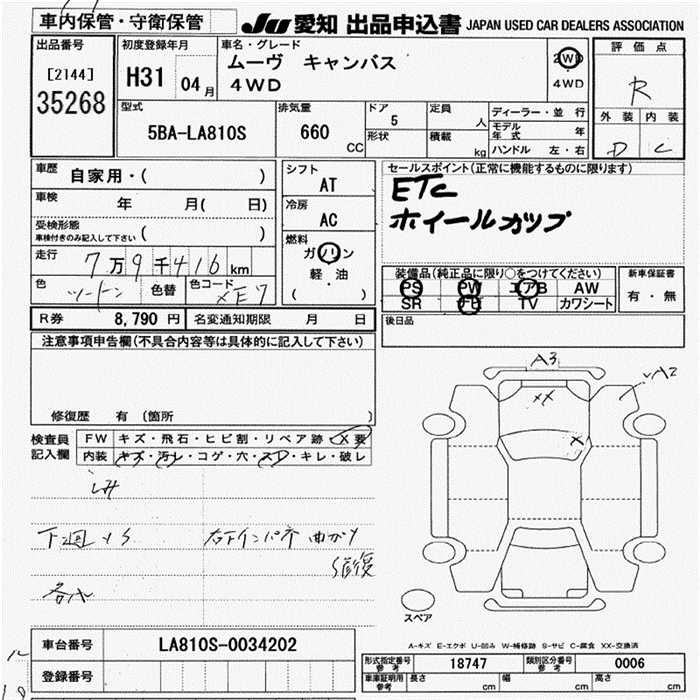 車内保管・守衛保管
JU 愛知 出品申込書 JAPAN USED CAR DEALERS ASSOCIATION
出品番号
[2144]
35268
初度登録年月
H31 04月
車名・グレード
ムーヴ キャンバス
4WD
2WD
4WD
評価点
R
外装 内装
D C
型式
5BA-LA810S
排気量
660 CC
ドア
5
形状
定員
人
積載
kg
ディーラー・並 行
モデル年式 年
ハンドル 左・右
車歴
自家用・( )
車検
年 月( 日)
受検形態
車検付きのみ記入して下さい ( )
走行
7万9千416km
色
ツートン
色替
色コード
XE7
シフト
AT
冷房
AC
燃料
ガソリン
軽・油
( )
セールスポイント(正常に機能するものに限ります)
ETC
ホイールカップ
装備品(純正品に限り○をつけてください)
PS PW エアB AW
SR TV カワシート
新車保証書
有・無
後日品
R券 8,790 円
名変通知期限 月 日
注意事項申告欄(不具合内容等は具体的に記入して下さい)
修復歴 有 (箇所 )
検査員
記入欄
FW キズ・飛石・ヒビ割・リペア跡・X要
内装 キズ・汚レ・コゲ・穴・スレ・キレ・破レ
下廻りS 右下インパネ曲がり
S修復
A3
A2
XX
X
スペア
A-キズ E-エクボ U-凹み W-補修跡 S-サビ C-腐食 XX-交換済
車台番号
LA810S-0034202
登録番号
形式指定番号
参考
18747
類別区分番号
参考
0006
車庫証明用
参考
長さ cm
幅 cm
高さ cm